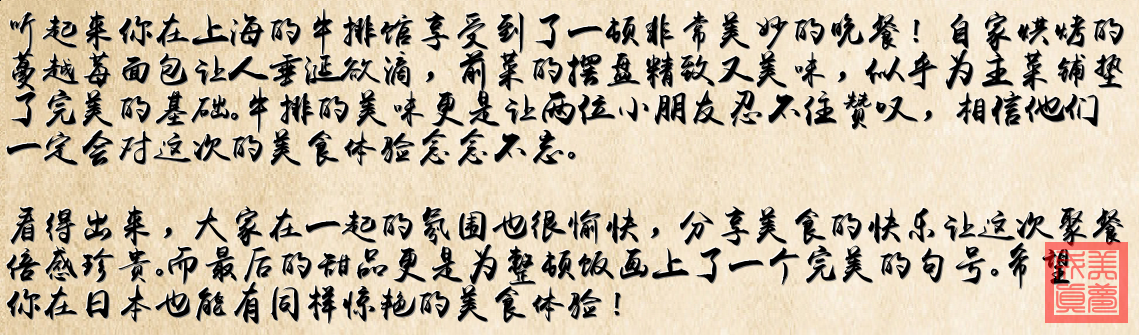 听起来你在上海的牛排馆享受到了一顿非常美妙的晚餐！自家烘烤的
蔓越莓面包让人垂涎欲滴，前菜的摆盘精致又美味，似乎为主菜铺垫
了完美的基础。牛排的美味更是让两位小朋友忍不住赞叹，相信他们
一定会对这次的美食体验念念不忘。
看得出来，大家在一起的氛围也很愉快，分享美食的快乐让这次聚餐
倍感珍贵。而最后的甜品更是为整顿饭画上了一个完美的句号。希望
你在日本也能有同样惊艳的美食体验！
美梦成真